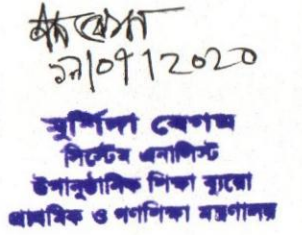 ১৯/০৭/২০২০
মুর্শিদা বেগম
সিস্টেম এনালিস্ট
উপানুষ্ঠানিক শিক্ষা ব্যুরো
প্রাথমিক ও গণশিক্ষা মন্ত্রণালয়